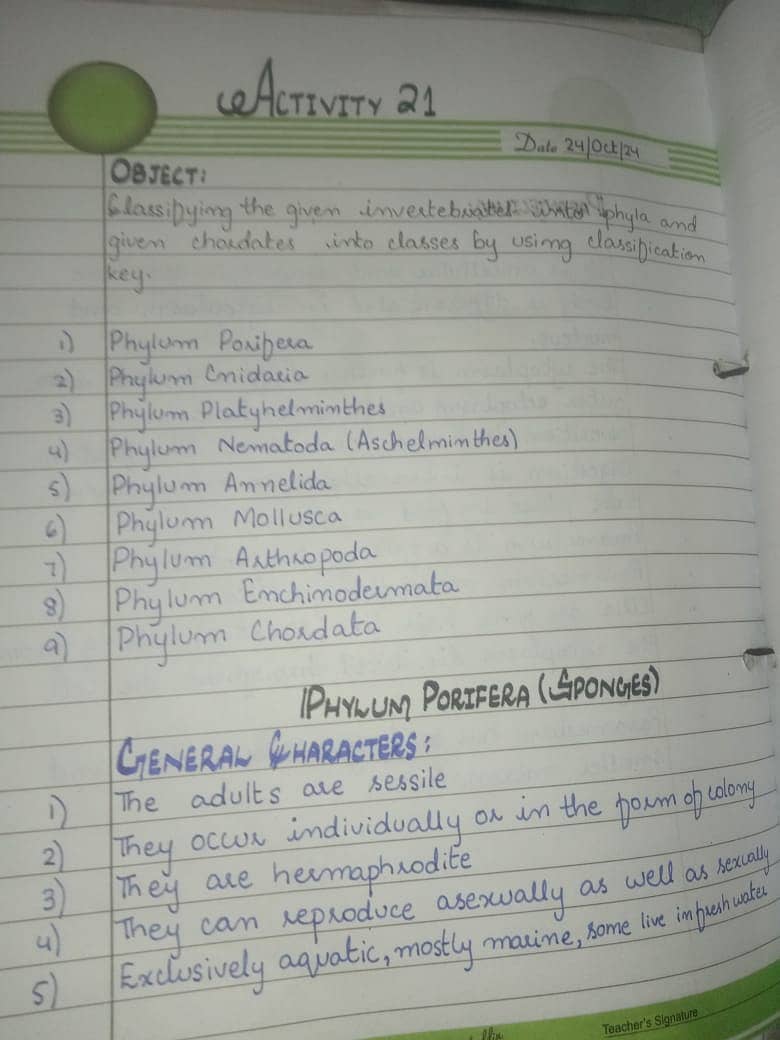 ACTIVITY 21
Date 24/Oct/24
OBJECT:
Classifying the given invertebrates into phyla and
given chordates into classes by using classification
key.
1) Phylum Porifera
2) Phylum Cnidaria
3) Phylum Platyhelminthes
4) Phylum Nematoda (Aschelminthes)
5) Phylum Annelida
6) Phylum Mollusca
7) Phylum Arthropoda
8) Phylum Enchinodermata
9) Phylum Chordata
PHYLUM PORIFERA (SPONGES)
GENERAL CHARACTERS:
1) The adults are sessile
2) They occur individually or in the form of colony
3) They are hermaphrodite
4) They can reproduce asexually as well as sexually
5) Exclusively aquatic, mostly marine, some live in fresh water
Teacher's Signature